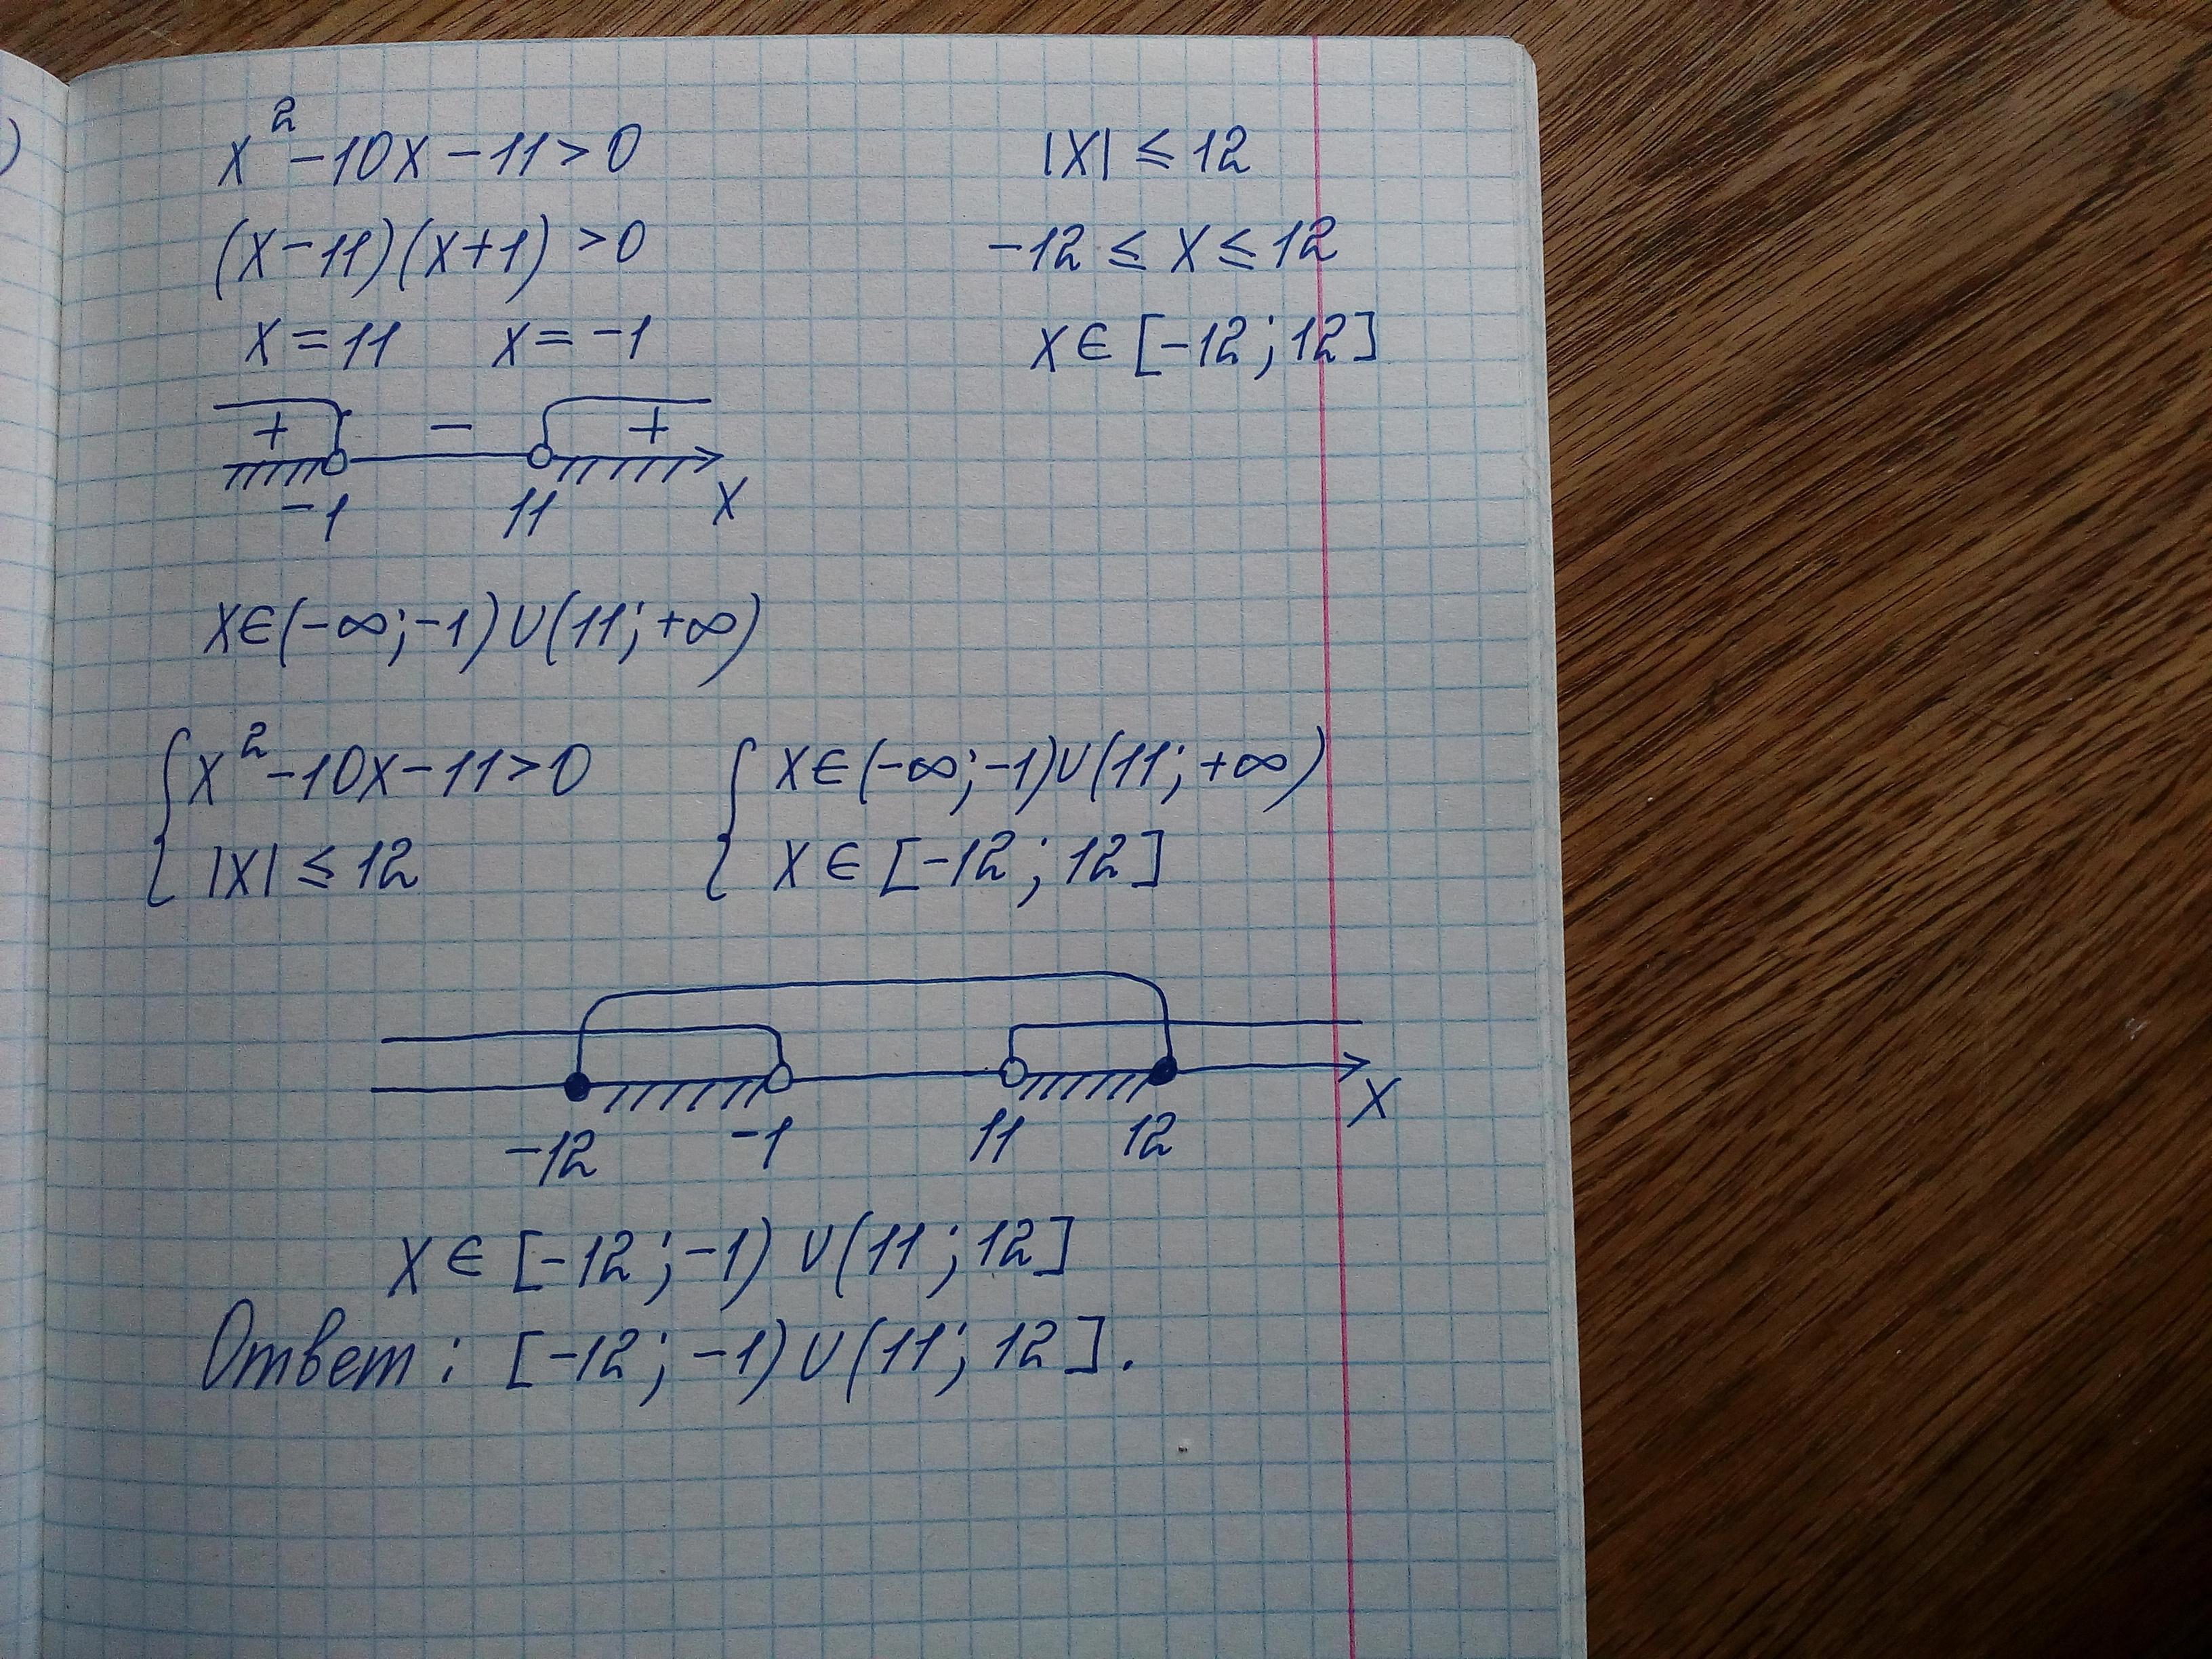 x² - 10x - 11 > 0
(x - 11)(x + 1) > 0
x = 11 x = -1
+ - +
-1 11 x
x ∈ (-∞; -1) ∪ (11; +∞)
|x| ≤ 12
-12 ≤ x ≤ 12
x ∈ [-12; 12]
{ x² - 10x - 11 > 0
|x| ≤ 12
{ x ∈ (-∞; -1) ∪ (11; +∞)
x ∈ [-12; 12]
-12 -1 11 12 x
x ∈ [-12; -1) ∪ (11; 12]
Ответ: [-12; -1) ∪ (11; 12].